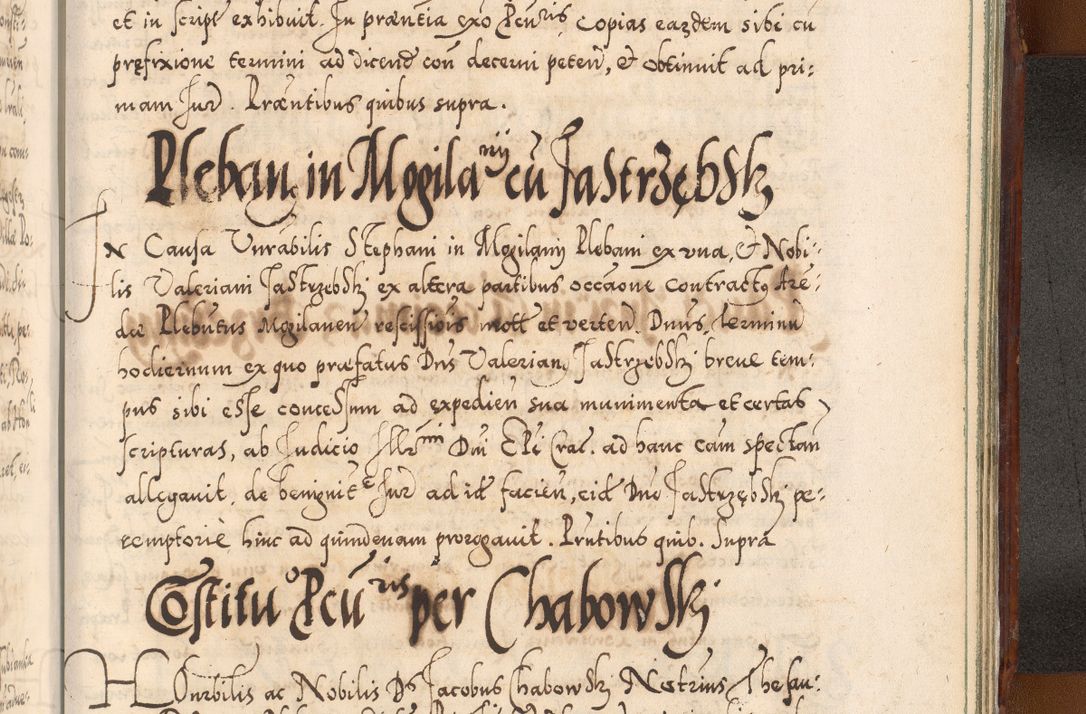 et in script exhibuit. In præntia exo Pcuris Copias eazdem sibi cu
pręfixione termini ad dicend con decerni peten, & obtinuit ad pri-
mam Jur. Præntibus quibus supra.
Pleban in Mogilanij cu Jastrzębsk
In Causa Vnrabilis Stephani in Mogilany Plebani ex vna, & Nobi-
lis Valeriani Jastrzebski ex altera partibus occaone contractus Are-
dæ Plebutus Mogilanen rescissiois mott et verten. Dnus terminu
hodiernum ex quo præfatus Dns Valerian Jastrzebski breue tem-
pus sibi esse concessum ad expedien sua munimenta et certas
scripturas, ab Judicio Illrmi Dni Epi Crac. ad hanc cam spectan
allegauit, de benignite Jur ad id facien, eid Dno Jastrzębski pe-
remptorie hinc ad quindenam prorogauit. Prntibus quib. supra
Costitu Pcuris per Chabowski
Honrbilis ac Nobilis Ds Jacobus Chabowski Notrius Thesau-